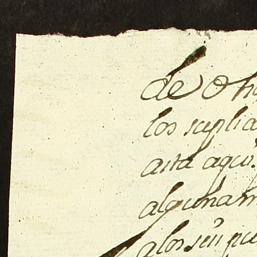 de O
los suplia
asta aqui.
algunam
a los seu pu